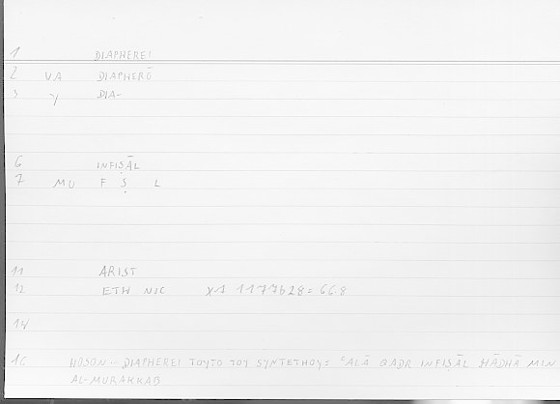 1 DIAPHEREI
2 VA DIAPHERŌ
3 Y DIA-
6 INFIṢĀL
7 MU F Ṣ L
11 ARIST
12 ETH NIC X1 1177b28 = 66.8
14
16 HOSON·· DIAPHEREI TOYTO TOY SYNTETHOY = ʿALĀ QADR INFIṢĀL HĀDHĀ MIN
AL-MURAKKAB